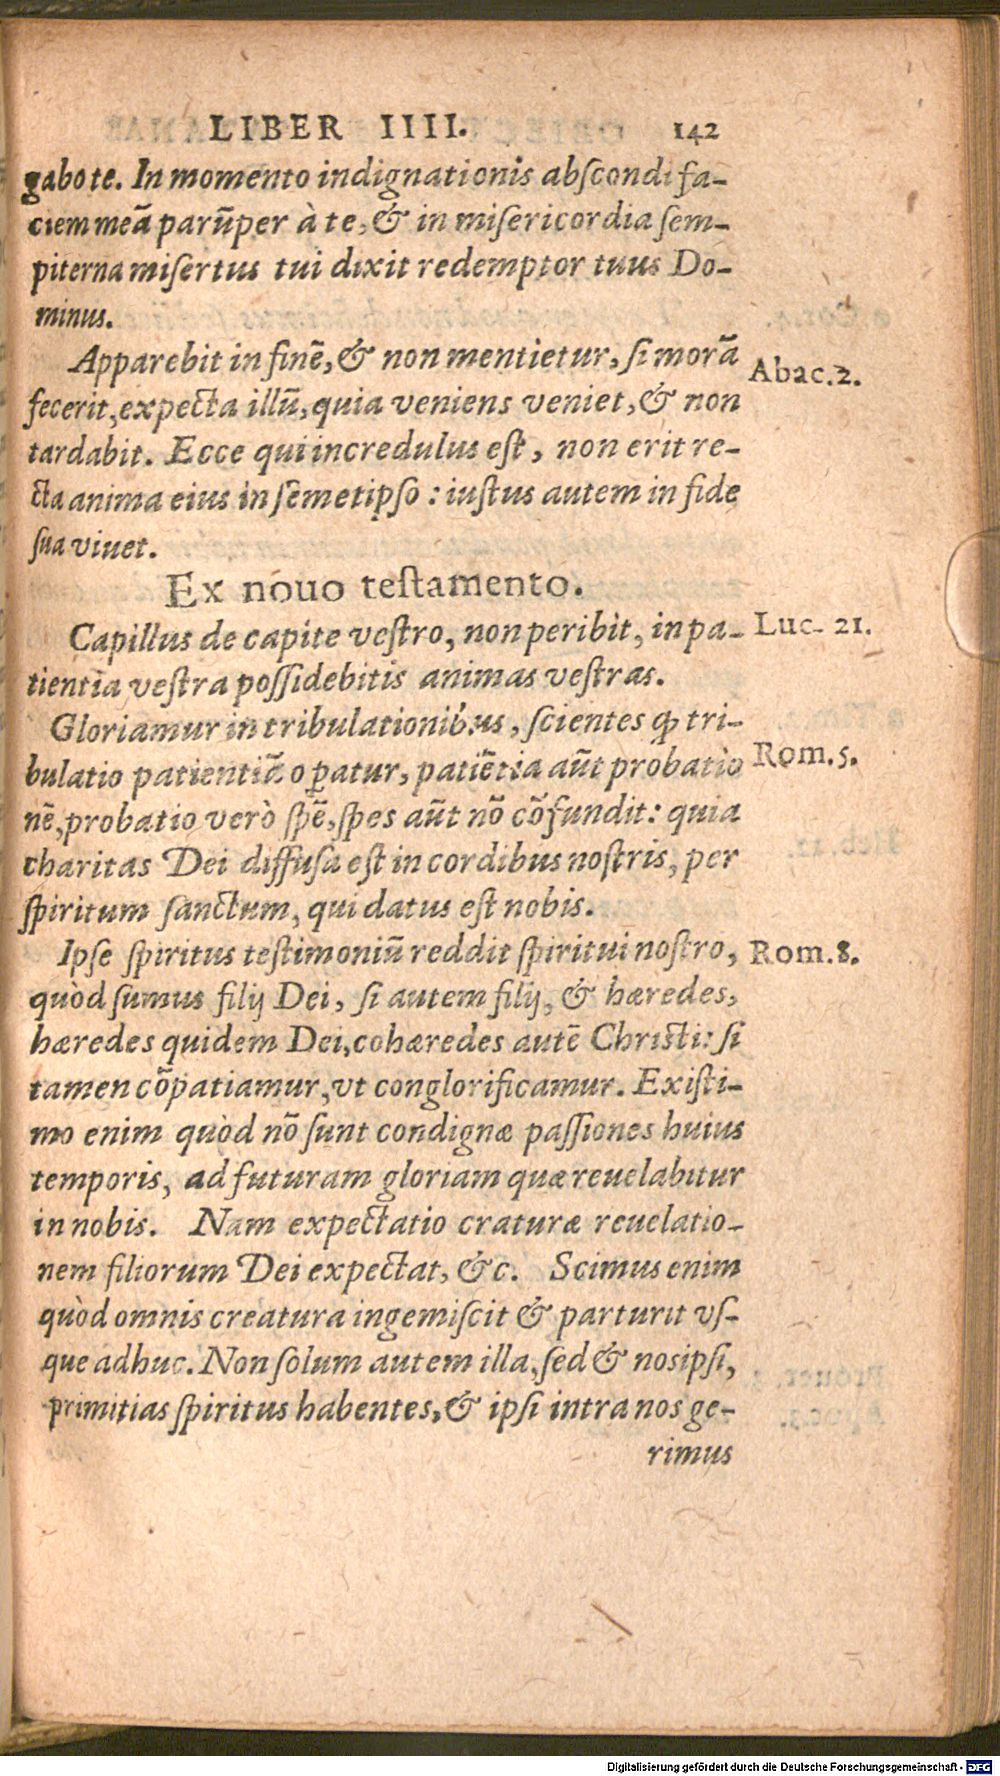 LIBER IIII. 142
gabo te. In momento indignationis abſcondi fa-
ciem meā parūper à te, & in miſericordia ſem-
piterna miſertus tui dixit redemptor tuus Do-
minus.
Apparebit in finē, & non mentietur, ſi morā
Abac. 2.
fecerit, expecta illū, quia veniens veniet, & non
tardabit. Ecce qui incredulus eſt, non erit re-
cta anima eius in ſemetipſo: iuſtus autem in fide
ſua viuet.
Ex nouo teſtamento.
Capillus de capite veſtro, non peribit, in pa-
Luc. 21.
tientia veſtra poſſidebitis animas veſtras.
Gloriamur in tribulationibus, ſcientes ꝙ tri-
bulatio patientiā oꝑatur, patiētia aūt probatio
Rom. 5.
nē, probatio verò ſpē, ſpes aūt nō cōfundit: quia
charitas Dei diffuſa eſt in cordibus noſtris, per
ſpiritum ſanctum, qui datus eſt nobis.
Ipſe ſpiritus teſtimoniū reddit ſpiritui noſtro,
Rom. 8.
quòd ſumus filij Dei, ſi autem filij, & hæredes,
hæredes quidem Dei, cohæredes autē Chriſti: ſi
tamen cōpatiamur, vt conglorificamur. Exiſti-
mo enim quòd nō ſunt condignæ paſſiones huius
temporis, ad futuram gloriam quæ reuelabitur
in nobis. Nam expectatio craturæ reuelatio-
nem filiorum Dei expectat, &c. Scimus enim
quòd omnis creatura ingemiſcit & parturit vſ-
que adhuc. Non ſolum autem illa, ſed & nos ipſi,
primitias ſpiritus habentes, & ipſi intra nos ge-
rimus
Digitalisierung gefördert durch die Deutsche Forschungsgemeinschaft - DFG